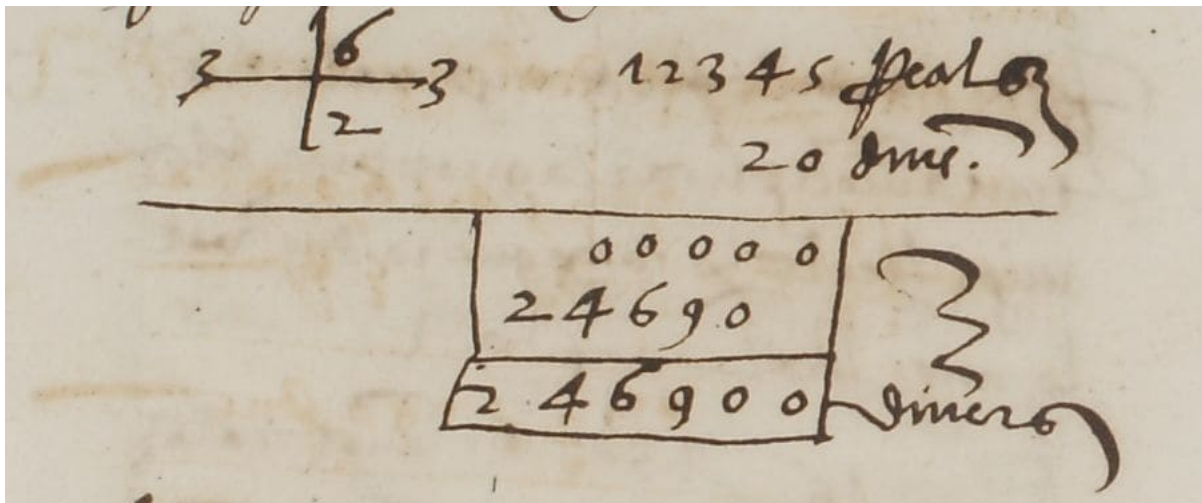 6
3 3 12345 Reals
2 20 dines.
00000
24690
246900 diners